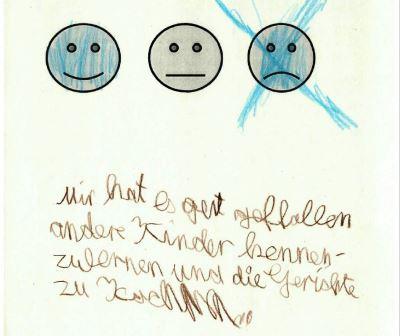 Mir hat es gut gefallen
andere Kinder kennen-
zulernen und die Gerichte
zu Kochen